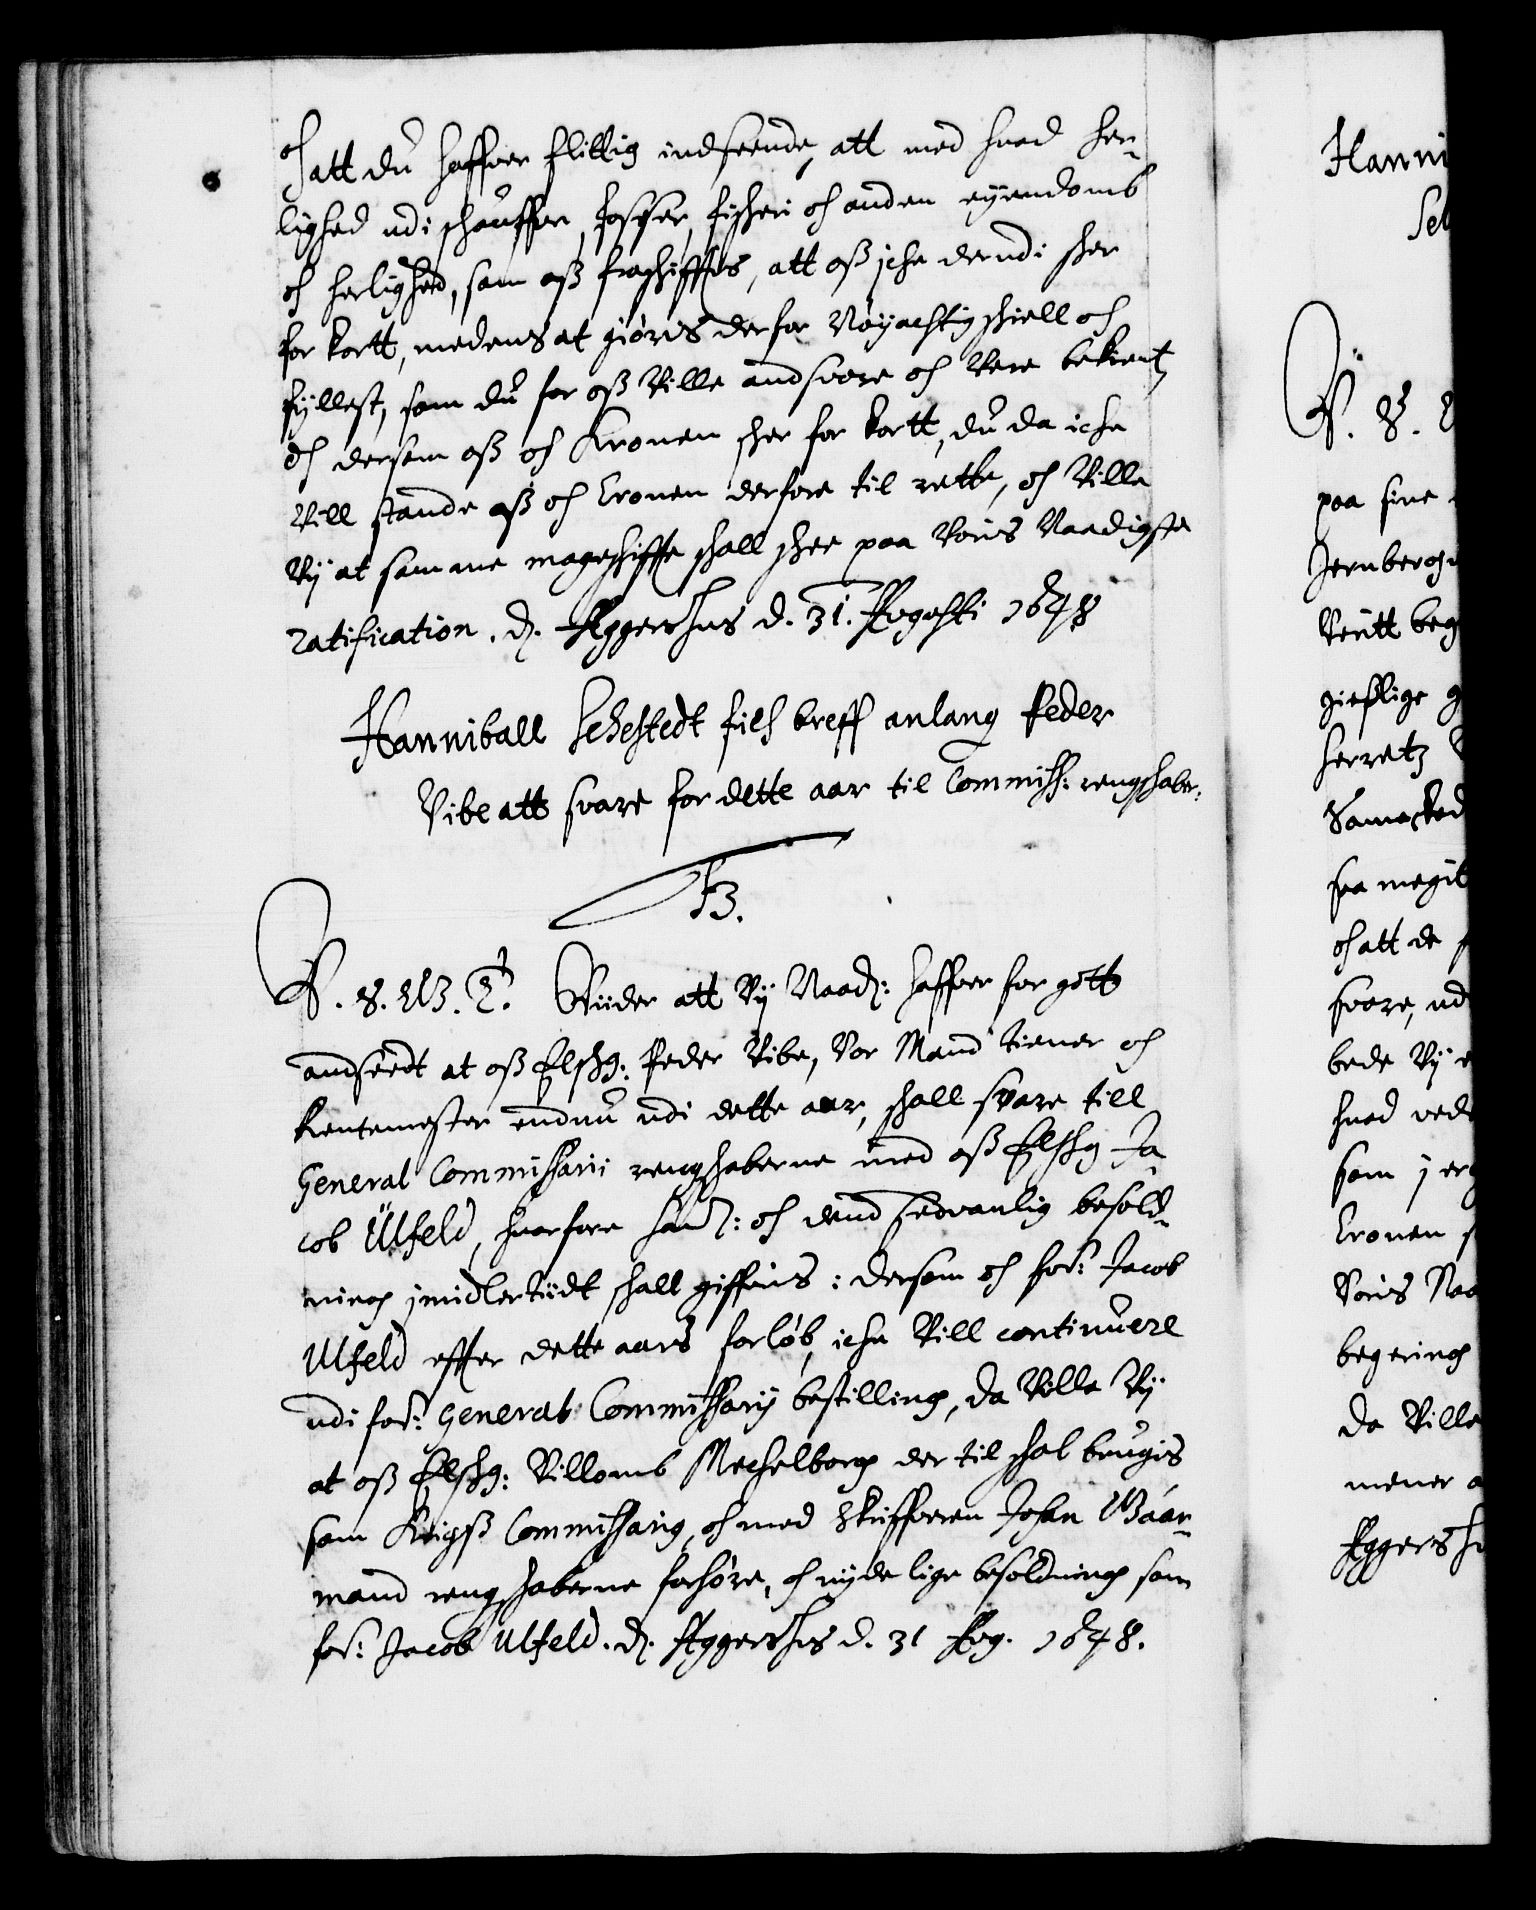 och
att du haffuer flittig indseende, att med huad her¬
lighed udi schouffue, fosser, fischeri och anden eyendomb
och herlighed, som oss fraschifftis, att oss iche derudi scher
for kortt, medens at giøris derfor Nøyachtig schiell och
fyllest, som du for oss Ville andsvare och Vere bekient,
och dersom oss och Kronen scher for kortt, du da iche
Vill stande oss och Cronen derfore til rette, och Ville
Vij at samme mageschiffte schall schee paa Voris Naadigste
ratification. d. Aggershus d. 31. Augusti 1648
Hanniball Sehestedt fich breff anlang Peder
Vibe att svare for dette aar til Commiss: rengschaber.
F3.
V. G. W. T. Viider att Vij Naad: haffuer for gott
andseedt at oss Elschg: Peder Vibe, Vor Mand tiener och
Rentemester endnu udi dette aar, schall svare till
General Commissarii rengschaberne med oss Elschg Ja
cob Ulfeld, huorfore hand: och dend sedvanlig besold¬
ning imidlertiidt schall giffuis: dersom och for: Jacob
Ulfeld effter dette aars forløb, iche Vill continuere
udi for: General Commissarij bestilling, da Ville Vij
at oss Elschg: Villomb Mechelborg der til schal brugis
som Krigss Commissarig, och med Skriffueren Johan Båar¬
mand rengschaberne forhøre, och nyde lige besoldning som
for: Jacob Ulfeld. d. Aggershus d. 31 Aug. 1648.
Hanni
Seh
V. G.
paa sine
Jernberch
Veritt beg
herretz
saa megit
och att de
svare, ud
bede Vij
huad ved
som j er
Cronen
Voris Naa
begering
da Ville
mener
Aggershu